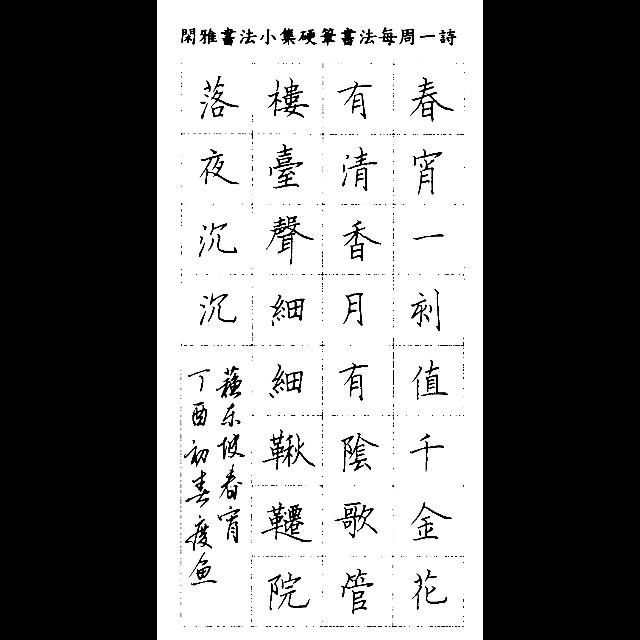 閑雅書法小集硬筆書法每周一詩
春宵一刻值千金花
有清香月有陰歌管
樓臺聲細細鞦韆院
落夜沉沉
蘇东坡春宵
丁酉初春度鱼